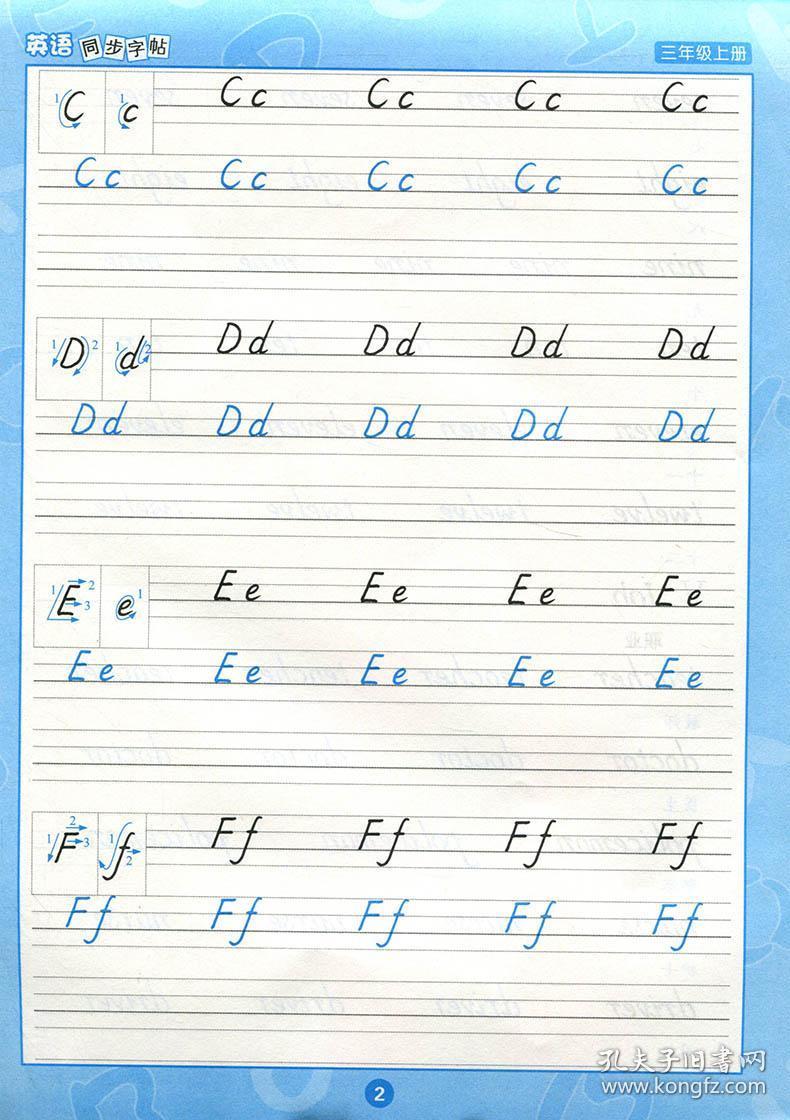 英语 同步字帖 三年级上册
1 C 1 c Cc Cc Cc Cc
Cc Cc Cc Cc Cc
1 D 2 1 d 2 Dd Dd Dd Dd
Dd Dd Dd Dd Dd
1 E 2 3 e 1 Ee Ee Ee Ee
Ee Ee Ee Ee Ee
1 F 2 3 1 f 2 Ff Ff Ff Ff
Ff Ff Ff Ff Ff
孔夫子旧书网
www.kongfz.com
2